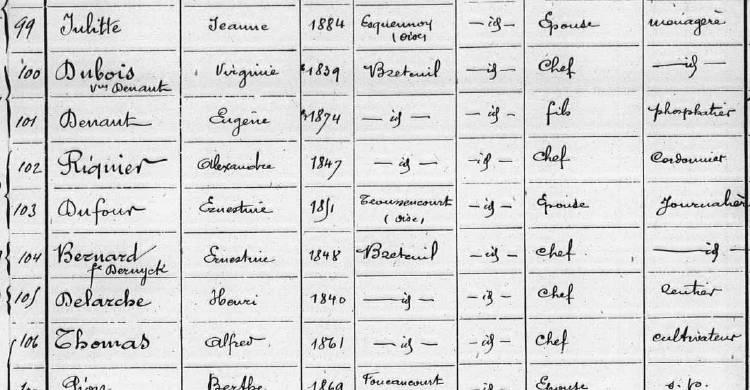 99 Julitte Jeanne 1884 Esquennoy - id - Épouse ménagère
(Oise)
100 Dubois Virginie 1839 Breteuil - id - Chef - id -
Vve Denaut
101 Denaut Eugène 1874 - id - - id - fils phosphatier
102 Riquier Alexandre 1847 - id - - id - Chef Cordonnier
103 Dufour Ernestine 1851 - id - Épouse Journalière
(Oise)
104 Bernard Ernestine 1848 Breteuil - id - Chef - id -
fe
105 Delarche Henri 1840 - id - - id - Chef rentier
106 Thomas Alfred 1861 - id - - id - Chef cultivateur
Berthe 1869 Foucaucourt - id - Épouse s. p.